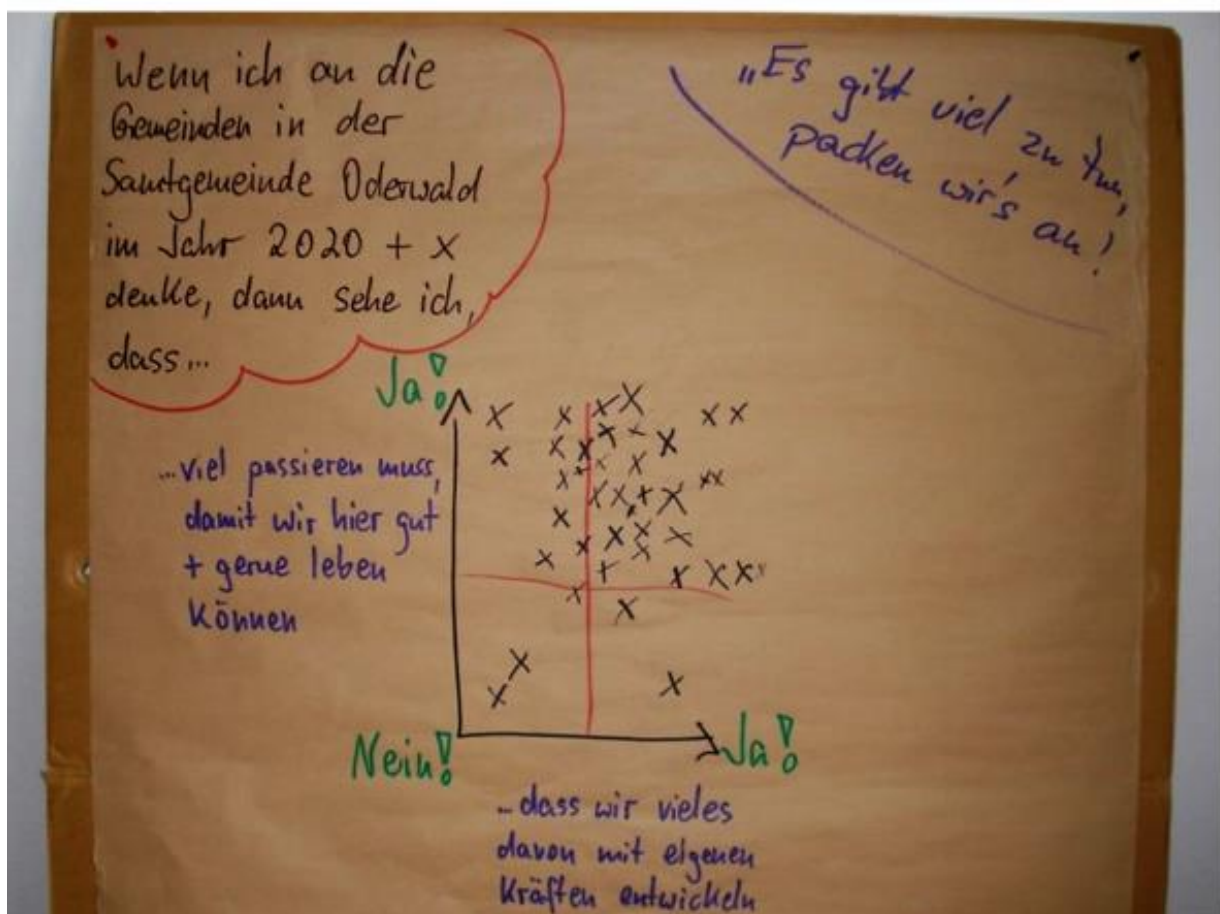 Wenn ich an die
Gemeinden in der
Samtgemeinde Oderwald
im Jahr 2020 + x
denke, dann sehe ich,
dass...
„Es gibt viel zu tun,
packen wir's an!
Ja!
...viel passieren muss,
damit wir hier gut
+ gerne leben
können
Nein!
Ja!
...dass wir vieles
davon mit eigenen
Kräften entwickeln